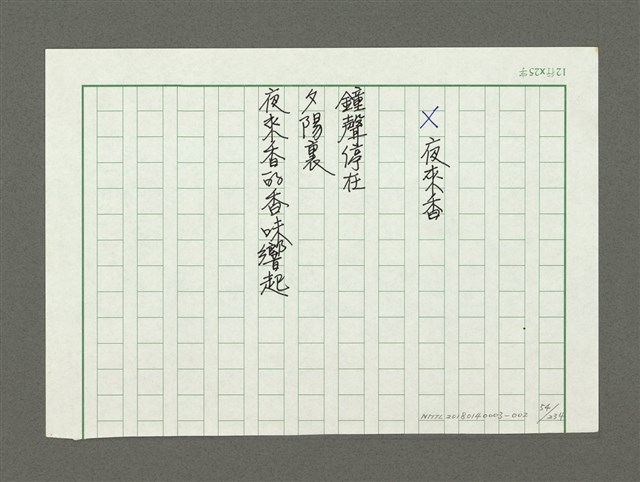 12行×25字
×夜來香
鐘聲停在
夕陽裏
夜來香的香味響起
NMTL20180140003-002
54/234